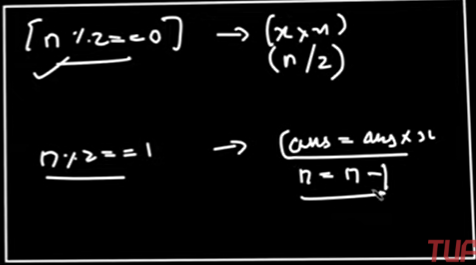 [n % 2 == 0] → (x × x)
(n / 2)
n % 2 == 1 → (ans = ans × x
n = n - 1
TUF